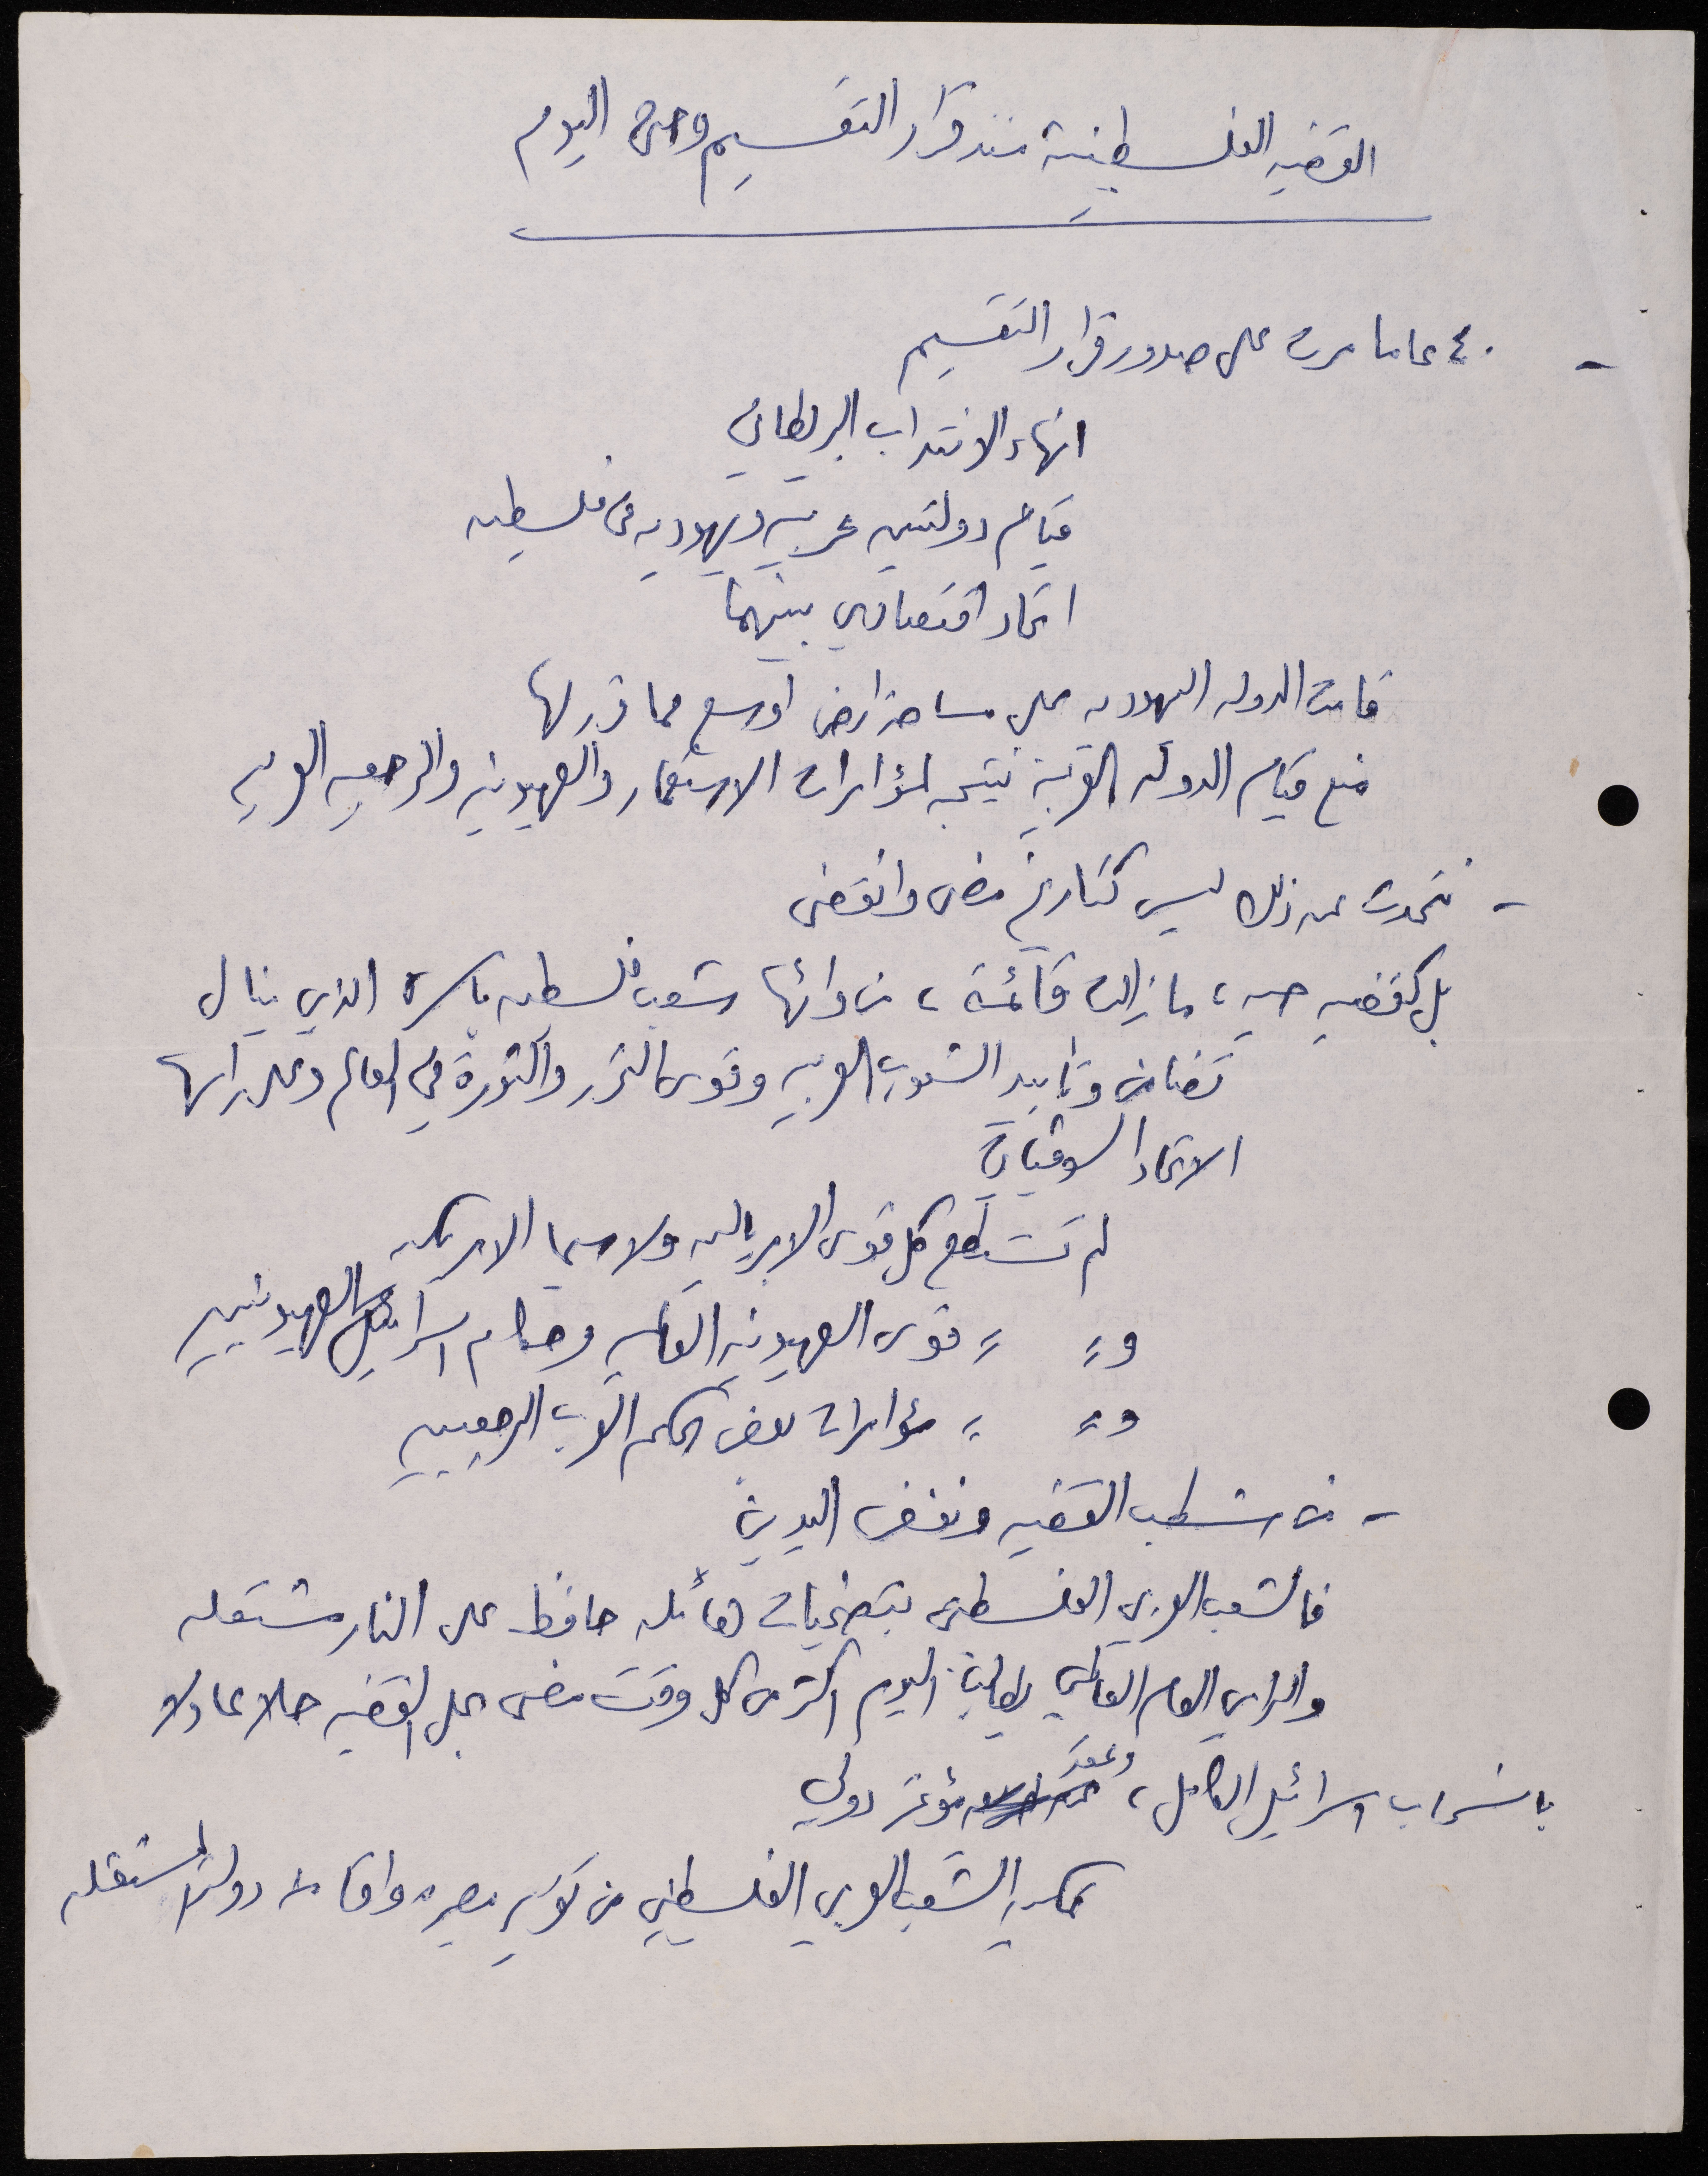 القضيه الفلسطينية منذ قرار التقسيم وحتى اليوم
- ٤٠ عاما مرت على صدور قرار التقسيم
انهاء الانتداب البريطاني
قيام دولتين عربيه ويهوديه في فلسطين
اتحاد اقتصادي بينهما
قامت الدوله اليهوديه على مساحة ارض اوسع مما قرر لها
منع قيام الدوله العربية نتيجه لمؤامرات الاستعمار والصهيونيه والرجعيه العربيه
- نتحدث عن ذلك ليس كتاريخ مضى وانقضى
بل كقضيه حيه، ما زالت قائمة، من ورائها شعب فلسطين باسره الذي ينال
تضامن وتاييد الشعوب العربيه وقوى التحرر والثورة في العالم وعلى راسها
الاتحاد السوفياتي
لم تستطع كل قوى الامبرياليه ولا سيما الامريكيه
و〃 〃 قوى الصهيونيه العالميه وحكام اسرائيل الصهيونيين
و〃 〃 مؤامرات بعض الحكام العرب الرجعيين
- من شطب القضيه ونفض اليدين
فالشعب العربي الفلسطيني بتضحيات هائله حافظ على النار مشتعله
والراي العام العالمي يطالب اليوم اكثر من كل وقت مضى بحل القضيه حلا عادلا
بانسحاب اسرائيل الكامل، وعقد مؤتمر دولي
تمكين الشعب العربي الفلسطيني من تقرير مصيره واقامة دولته المستقله